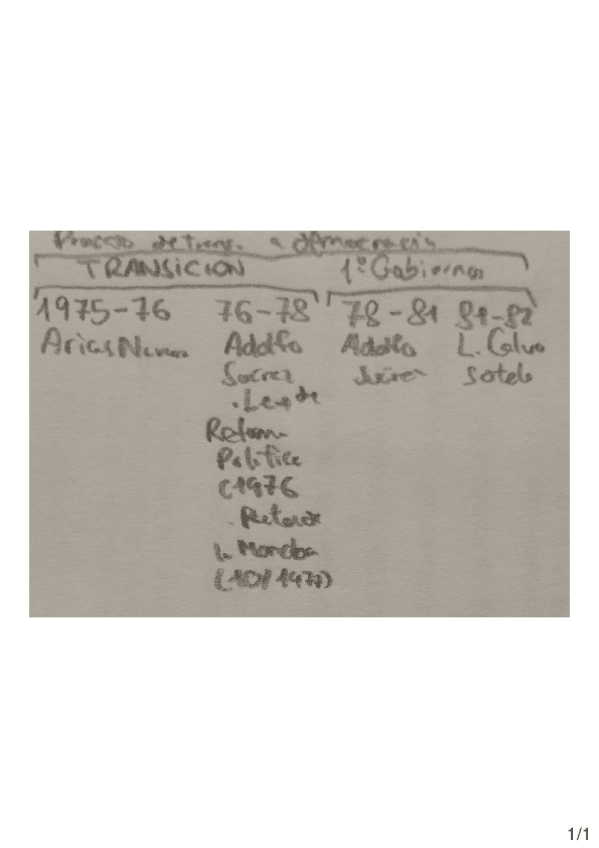 Proceso de trans. a democracia
TRANSICION 1º Gobiernos
1975-76 76-78 78-81 81-82
Arias Navarro Adolfo Adolfo L. Calvo
Suárez Suárez Sotelo
. Ley de
Reforma
Política
(1976
. Pactos de
la Moncloa
(10/1977)
1/1